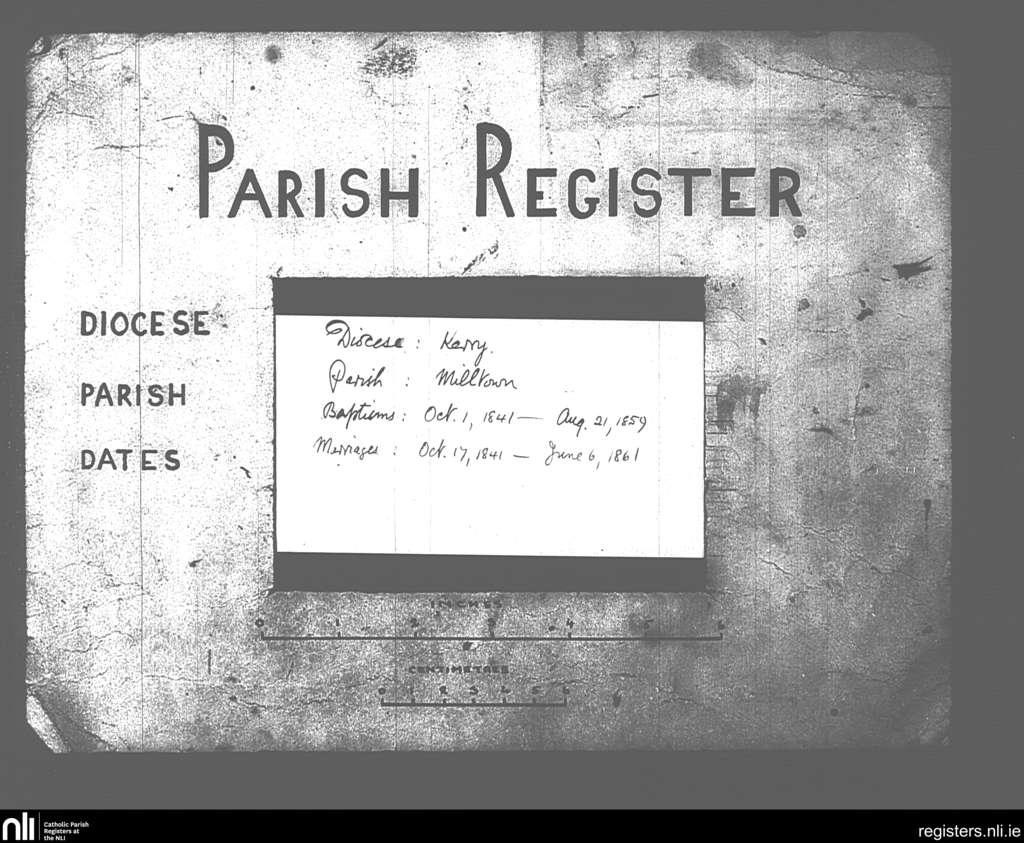 PARISH REGISTER
DIOCESE
PARISH
DATES
Diocese : Kerry.
Parish : Milltown
Baptisms : Oct. 1, 1841 — Aug. 21, 1859
Marriages : Oct. 17, 1841 — June 6, 1861
INCHES
0 1 2 3 4 5 6
CENTIMETRES
0 1 2 3 4 5 6
nli
Catholic Parish
Registers at
the NLI
registers.nli.ie